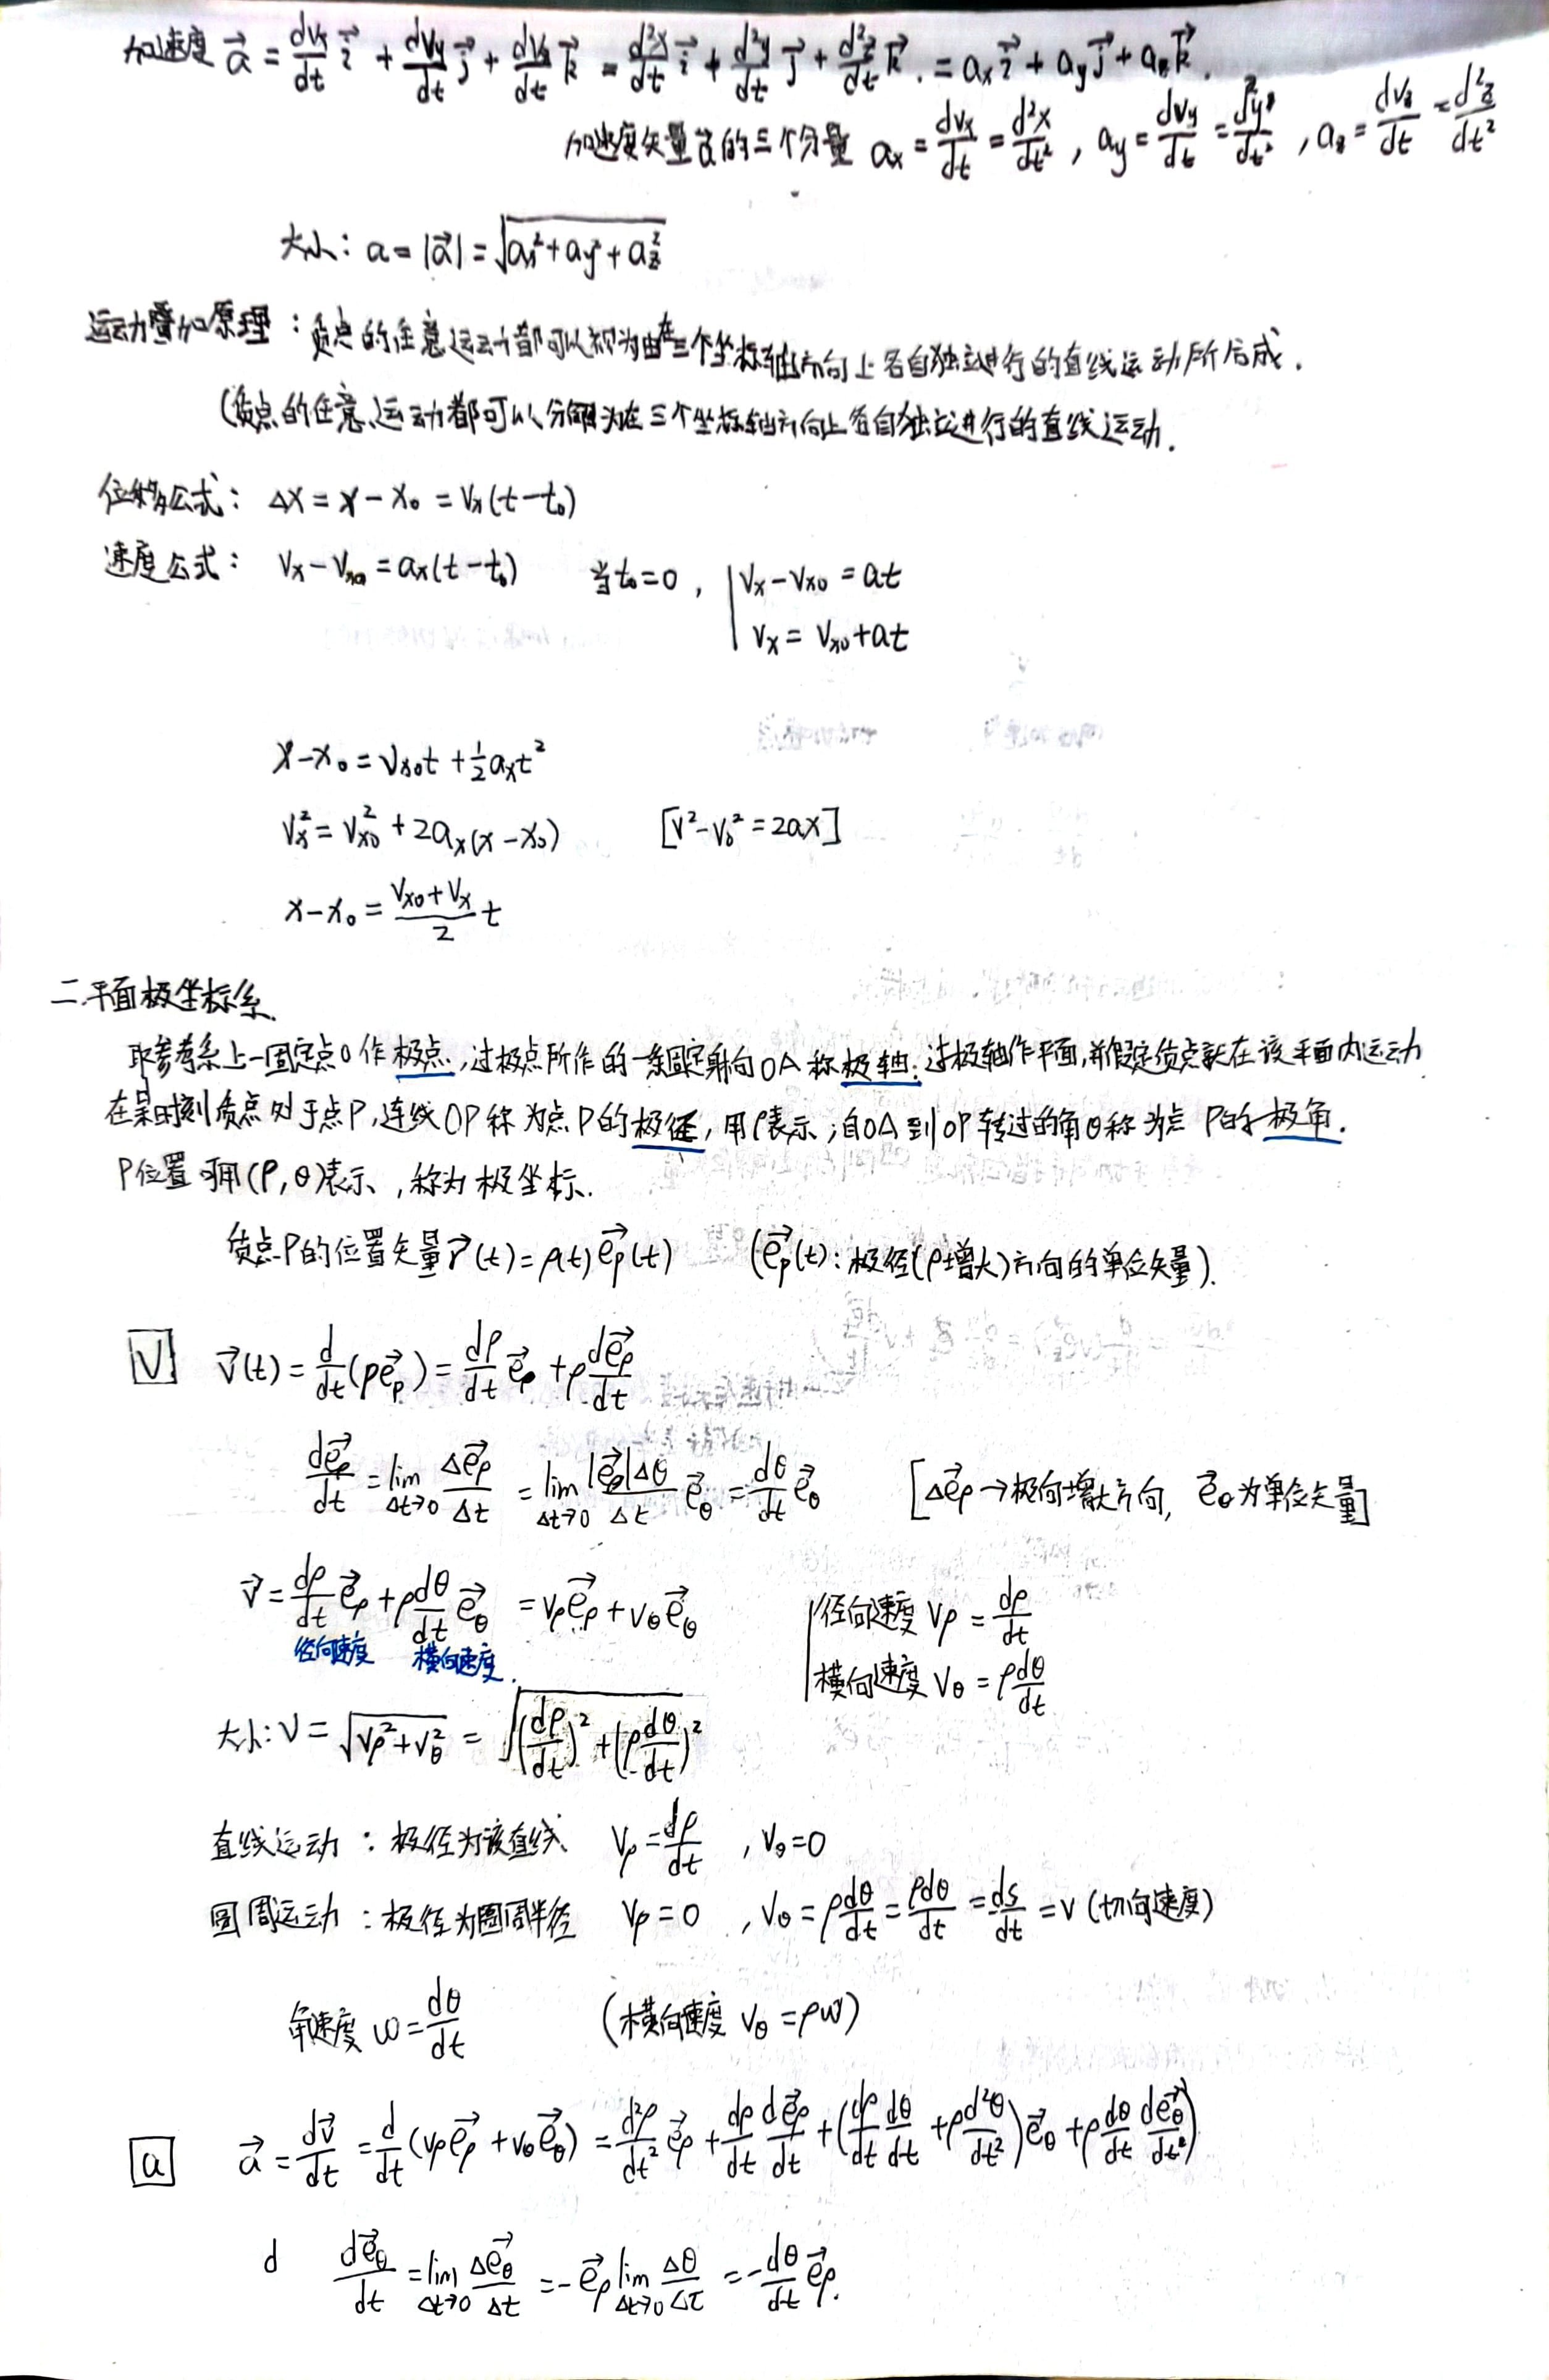 加速度 $\vec{a} = \frac{dv_x}{dt}\vec{i} + \frac{dv_y}{dt}\vec{j} + \frac{dv_z}{dt}\vec{k} = \frac{d^2x}{dt}\vec{i} + \frac{d^2y}{dt}\vec{j} + \frac{d^2z}{dt}\vec{k}. = a_x\vec{i} + a_y\vec{j} + a_z\vec{k}.$
加速度矢量 $\vec{a}$ 的三个分量 $a_x = \frac{dv_x}{dt} = \frac{d^2x}{dt^2}, a_y = \frac{dv_y}{dt} = \frac{d^2y}{dt^2}, a_z = \frac{dv_z}{dt} = \frac{d^2z}{dt^2}$
大小: $a = |\vec{a}| = \sqrt{a_x^2 + a_y^2 + a_z^2}$
运动叠加原理：质点的任意运动都可以视为由在三个坐标轴方向上各自独立进行的直线运动所合成.
(质点的任意运动都可以分解为在三个坐标轴方向上各自独立进行的直线运动.
位移公式: $\Delta x = x - x_0 = v_x(t - t_0)$
速度公式: $v_x - v_{x0} = a_x(t - t_0)$ 当 $t_0 = 0$, $v_x - v_{x0} = at$
$v_x = v_{x0} + at$
$x - x_0 = v_{x0}t + \frac{1}{2}a_xt^2$
$v_x^2 = v_{x0}^2 + 2a_x(x - x_0)$ $[v^2 - v_0^2 = 2ax]$
$x - x_0 = \frac{v_{x0} + v_x}{2}t$
二.平面极坐标系.
取参考系上一固定点O作极点,过极点所作的一条固定射向OA称极轴;过极轴作平面,并假定质点就在该平面内运动
在某时刻质点处于点P,连线OP称为点P的极径,用ρ表示;自OA到OP转过的角θ称为点P的极角.
P位置可用(ρ,θ)表示,称为极坐标.
质点P的位置矢量 $\vec{r}(t) = \rho(t)\vec{e_\rho}(t)$ ($\vec{e_\rho}(t)$: 极径(ρ增大)方向的单位矢量).
V $\vec{v}(t) = \frac{d}{dt}(\rho\vec{e_\rho}) = \frac{d\rho}{dt}\vec{e_\rho} + \rho\frac{d\vec{e_\rho}}{dt}$
$\frac{d\vec{e_\rho}}{dt} = \lim_{\Delta t \to 0}\frac{\Delta\vec{e_\rho}}{\Delta t} = \lim_{\Delta t \to 0}\frac{|\vec{e_\rho}|\Delta\theta}{\Delta t}\vec{e_\theta} = \frac{d\theta}{dt}\vec{e_\theta}$ [$\Delta\vec{e_\rho}$ → 极向增大方向, $\vec{e_\theta}$ 为单位矢量]
$\vec{v} = \frac{d\rho}{dt}\vec{e_\rho} + \rho\frac{d\theta}{dt}\vec{e_\theta} = v_\rho\vec{e_\rho} + v_\theta\vec{e_\theta}$ 径向速度 $v_\rho = \frac{d\rho}{dt}$
径向速度 横向速度. 横向速度 $v_\theta = \rho\frac{d\theta}{dt}$
大小: $v = \sqrt{v_\rho^2 + v_\theta^2} = \sqrt{(\frac{d\rho}{dt})^2 + (\rho\frac{d\theta}{dt})^2}$
直线运动：极径为该直线 $v_\rho = \frac{d\rho}{dt}, v_\theta = 0$
圆周运动：极径为圆周半径 $v_\rho = 0, v_\theta = \rho\frac{d\theta}{dt} = \frac{\rho d\theta}{dt} = \frac{ds}{dt} = v$ (切向速度)
角速度 $\omega = \frac{d\theta}{dt}$ (横向速度 $v_\theta = \rho\omega$)
a $\vec{a} = \frac{d\vec{v}}{dt} = \frac{d}{dt}(v_\rho\vec{e_\rho} + v_\theta\vec{e_\theta}) = \frac{d^2\rho}{dt^2}\vec{e_\rho} + \frac{d\rho}{dt}\frac{d\vec{e_\rho}}{dt} + (\frac{d\rho}{dt}\frac{d\theta}{dt} + \rho\frac{d^2\theta}{dt^2})\vec{e_\theta} + \rho\frac{d\theta}{dt}\frac{d\vec{e_\theta}}{dt^2})$
d $\frac{d\vec{e_\theta}}{dt} = \lim_{\Delta t \to 0}\frac{\Delta\vec{e_\theta}}{\Delta t} = -\vec{e_\rho}\lim_{\Delta t \to 0}\frac{\Delta\theta}{\Delta t} = -\frac{d\theta}{dt}\vec{e_\rho}.$